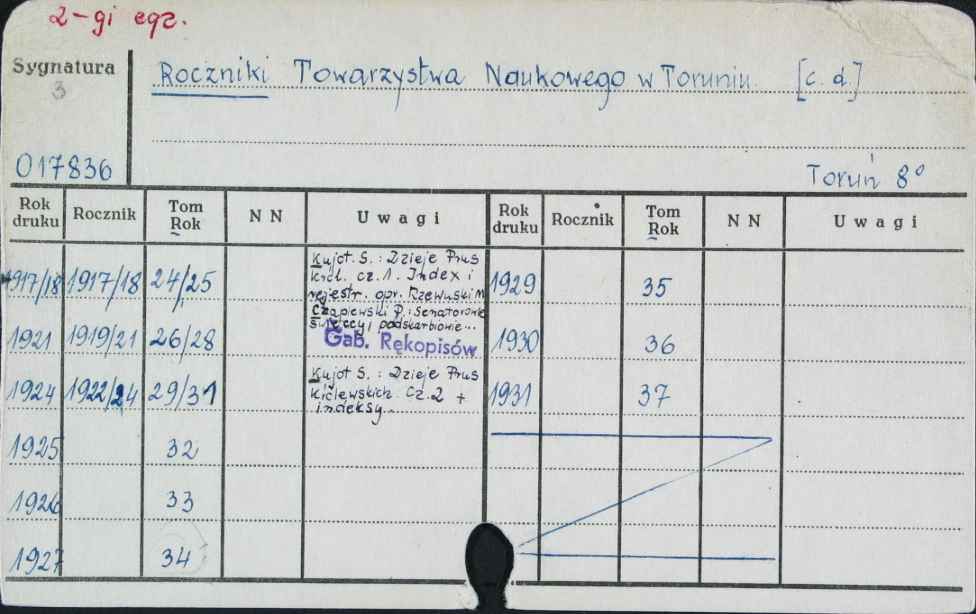 2-gi egz.
Sygnatura
3
Roczniki Towarzystwa Naukowego w Toruniu [c. d.]
017836
Toruń 8°
Rok druku Rocznik Tom Rok N N Uwagi Rok druku Rocznik Tom Rok N N Uwagi
1917/18 1917/18 24/25
Kujot S.: Dzieje Prus
Król. cz. 1. Index i
rejestr. opr. Rzewuski M
1929 35
1921 1919/21 26/28
Czaplewski P.: Senatorowie
świeccy, podskarbiowie...
Gab. Rękopisów
1930 36
1924 1922/24 29/31
Kujot S.: Dzieje Prus
Królewskich. Cz. 2 +
indeksy...
1931 37
1925 32
1926 33
1927 34